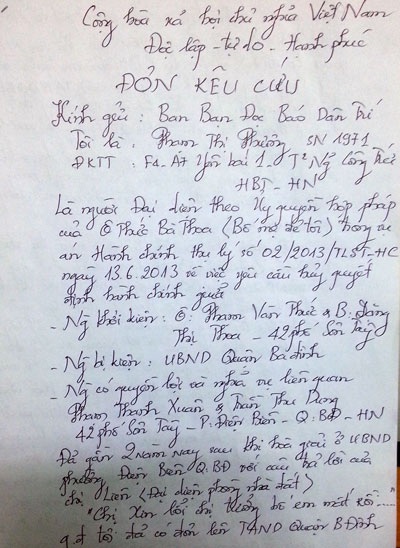 Cộng hòa xã hội chủ nghĩa Việt Nam
Độc lập - tự do - Hạnh phúc
ĐƠN KÊU CỨU
Kính gửi : Ban Bạn Đọc Báo Dân Trí
Tôi là : Phạm Thị Phượng SN 1971
ĐKTT : F4 - A7 Yên bái 1 - Ng Công Trứ
HBT - HN
Là người Đại diện theo Uỷ quyền hợp pháp
của Ô Phức Bà Thoa (Bố mẹ đẻ tôi) trong vụ
án Hành chính thụ lý số 02/2013/TLST-HC
ngày 13.6.2013 về việc yêu cầu hủy quyết
định hành chính giữa
- Ng khởi kiện : Ô: Phạm Văn Phức & B: Đặng
Thị Thoa - 42 phố Sơn Tây
- Ng bị kiện : UBND Quận Ba đình
- Ng có quyền lợi và nghĩa vụ liên quan
Phạm Thanh Xuân & Trần Thu Dung
42 phố Sơn Tây - P: Điện Biên - Q: BĐ - HN
Đã gần 2 năm nay sau khi hòa giải ở UBND
phường Điện Biên - Q: BĐ với câu trả lời của
chị Liên (Đại diện phòng nhà đất)
"Chị Xin lỗi chị tưởng bố em mất rồi....."
g.đ tôi đã có đơn lên TAND Quận B Đình